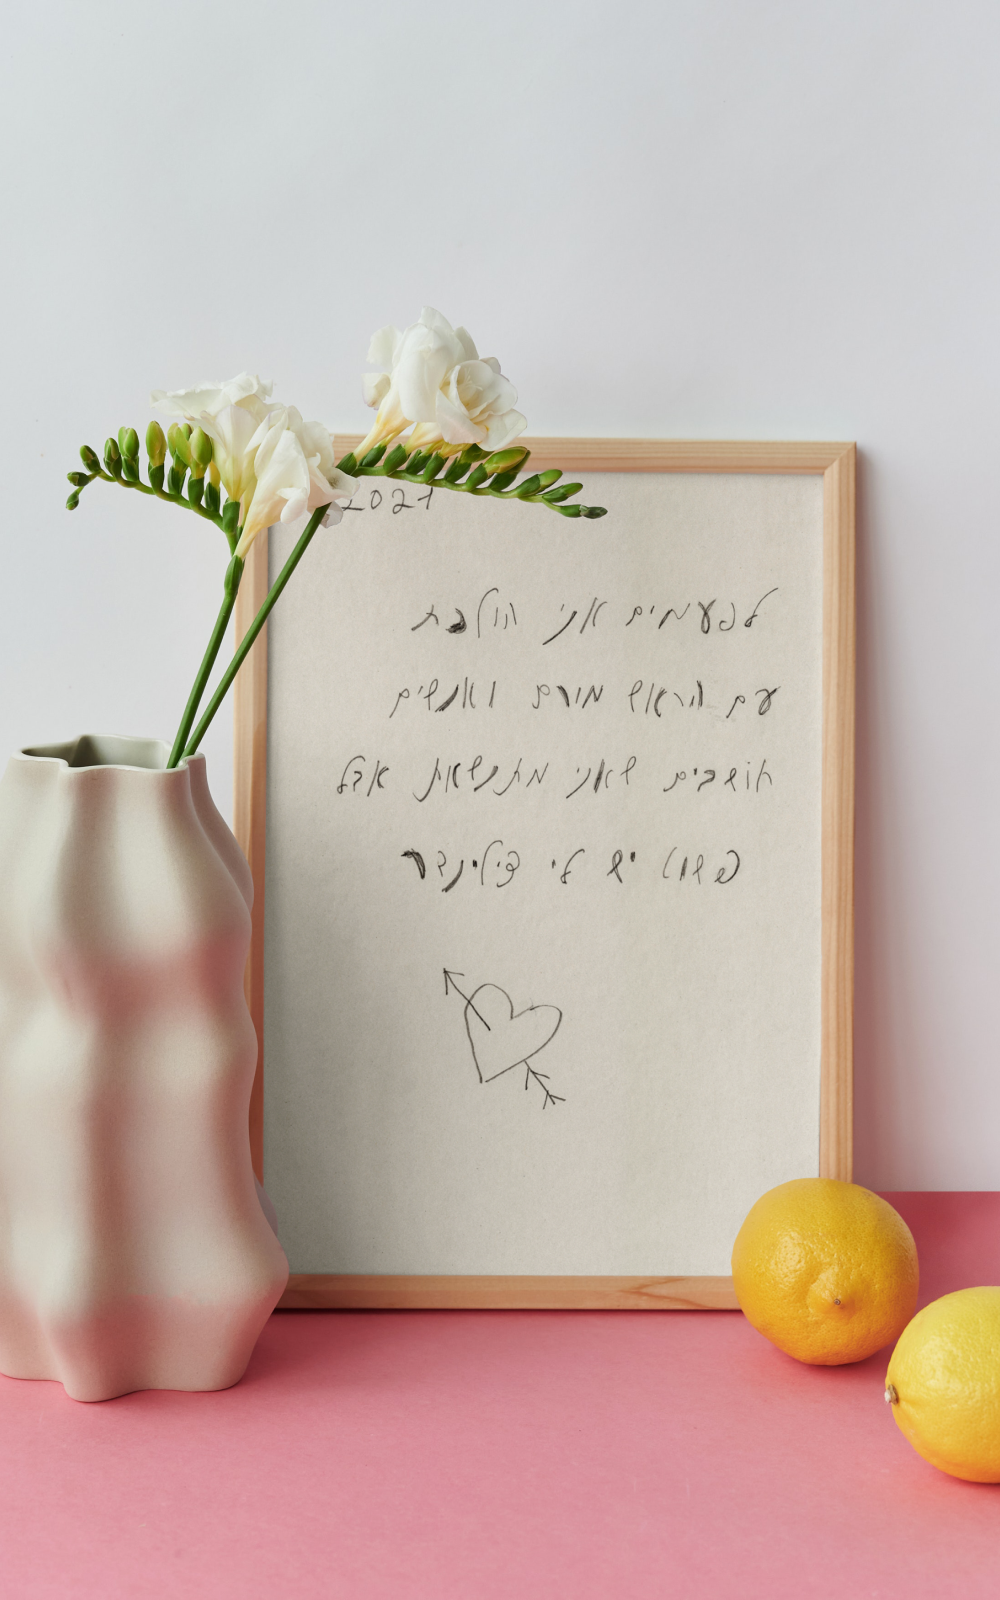 2021
לפעמים אני הולכת
עם הראש מורם ואנשים
חושבים שאני מתנשאת אבל
פשוט יש לי צילינדר